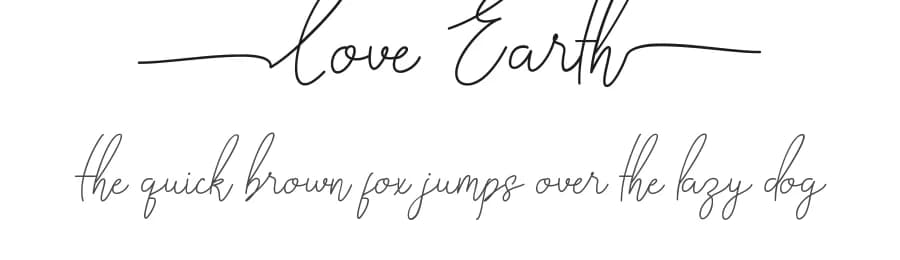 love Earth
the quick brown fox jumps over the lazy dog